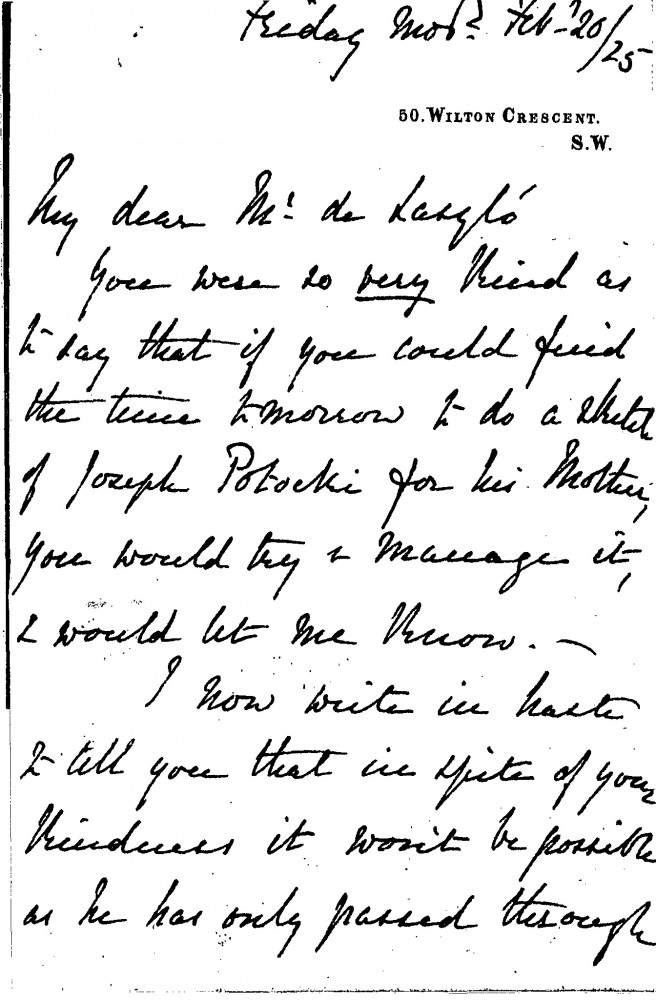 Friday Mor.g Feb. 20/25
50. WILTON CRESCENT.
S.W.
My dear Mr. de László
You were so very kind as
to say that if you could find
the time tomorrow to do a sketch
of Joseph Potocki for his Mother,
you would try & manage it,
& would let me know. —
I now write in haste
to tell you that in spite of your
kindness it won't be possible
as he has only passed through